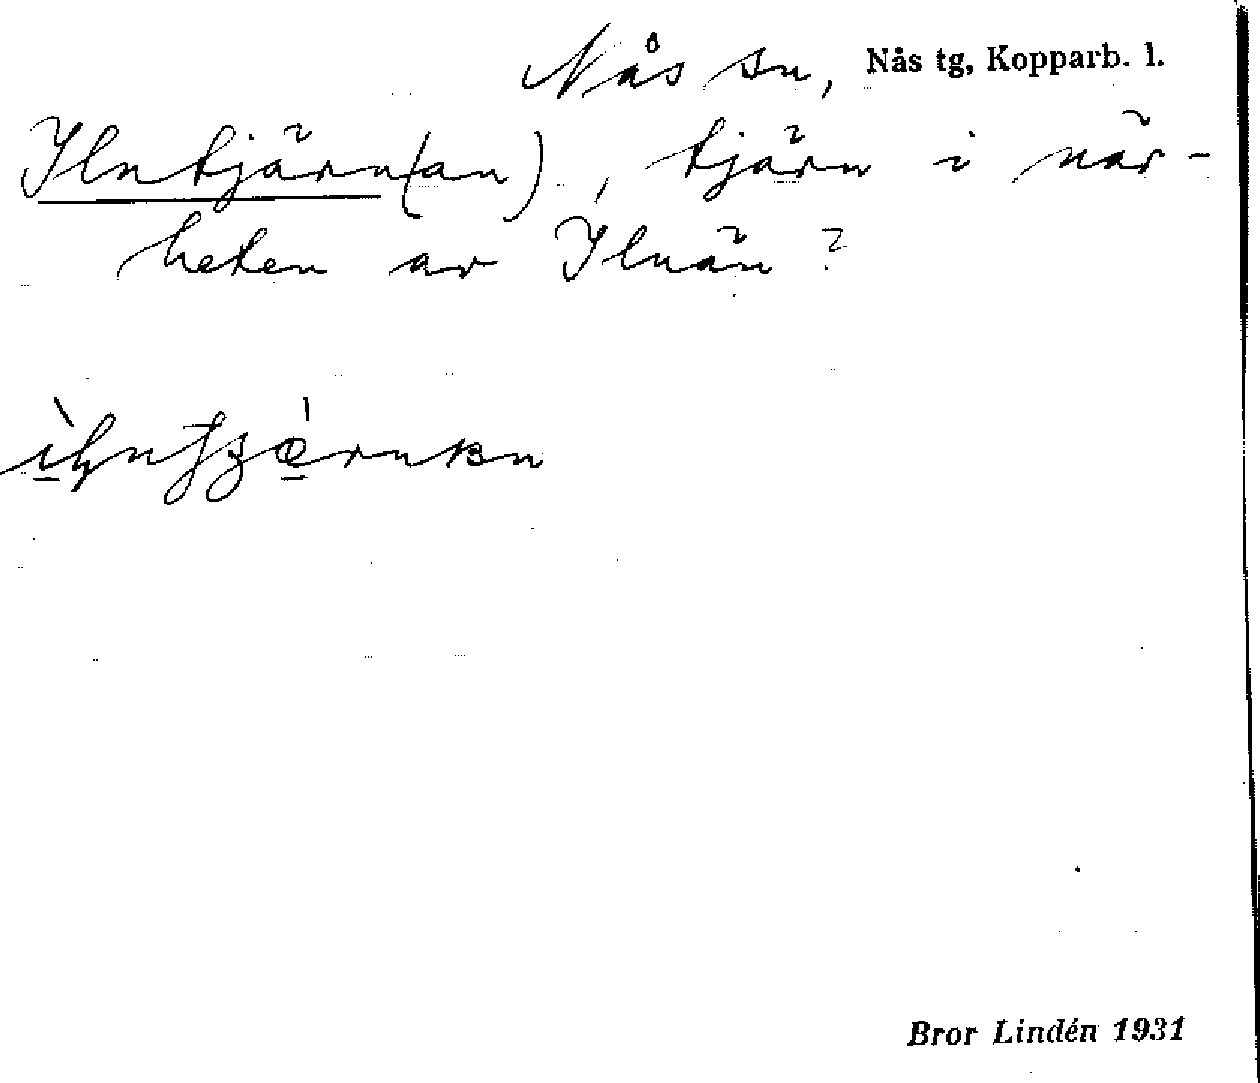 Nås sn, Nås tg, Kopparb. l.
Ilntjärn(an), tjärn i när-
heten av Ilnän?
Bror Lindén 1931